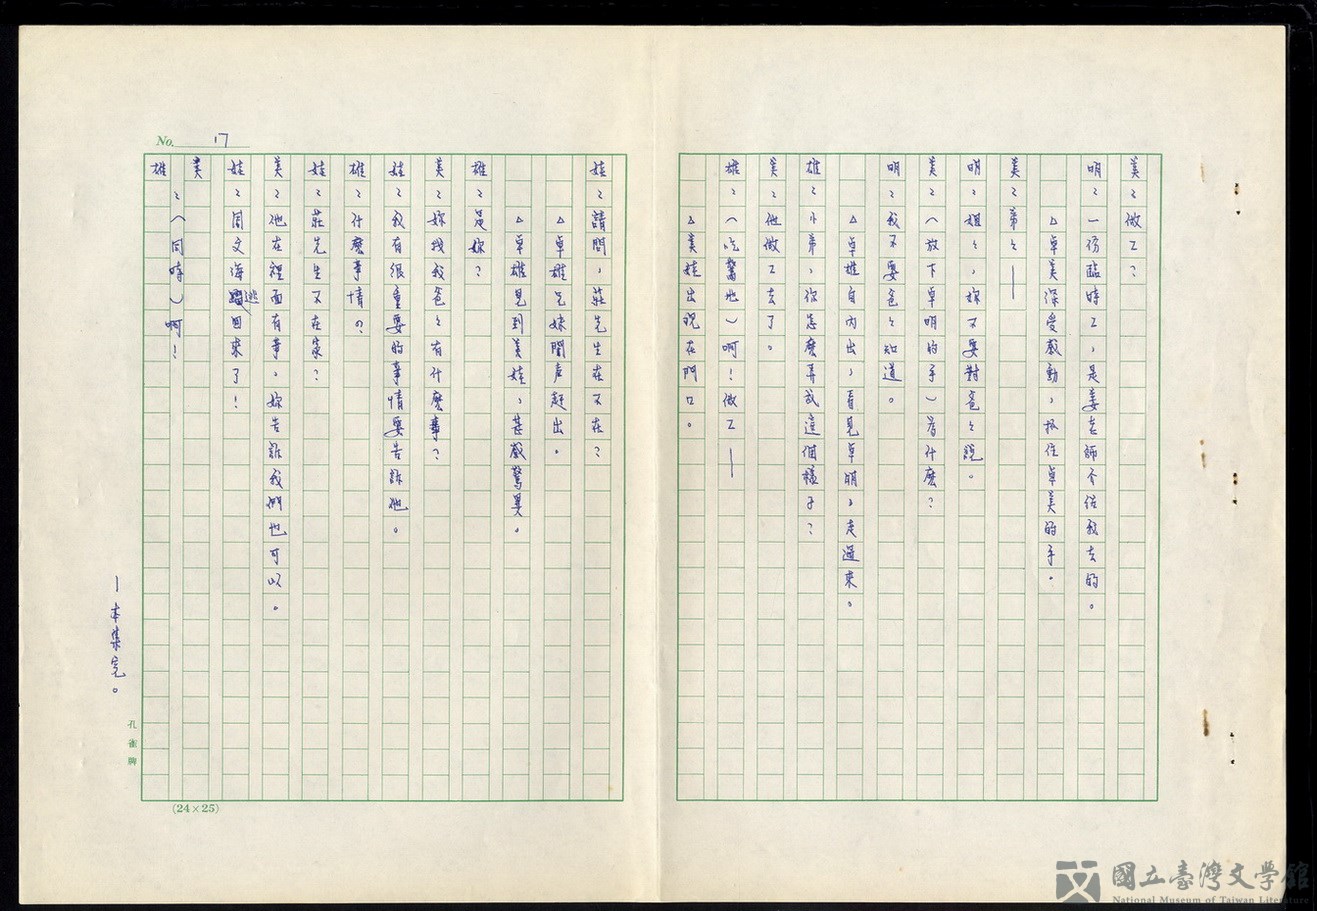 No. 17
美:做工?
明:一份臨時工,是姜老師介紹我去的。
△卓美深受感動,抓住卓美的手。
美:弟々——
明:姐々,妳不要對爸々說。
美:(放下卓明的手)為什麼?
明:我不要爸々知道。
△卓雄自內出,看見卓明,走過來。
雄:小弟,你怎麼弄成這個樣子?
美:他做工去了。
雄:(吃驚地)啊!做工——
△美娃出現在門口。
娃:請問,莊先生在不在?
△卓雄兄妹聞声赶出。
△卓雄見到美娃,甚感驚異。
雄:是妳?
美:妳找我爸々有什麼事?
娃:我有很重要的事情要告訴他。
雄:什麼事情?
娃:莊先生不在家?
美:他在裡面有事,妳告訴我們也可以。
娃:周文海逃回來了!
美
雄:(同時)啊!
—本集完。
孔雀牌
(24×25)
國立臺灣文學館
National Museum of Taiwan Literature